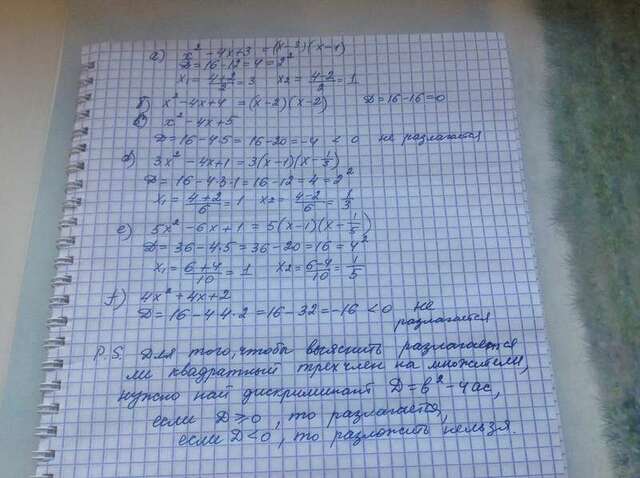 а) x² - 4x + 3 = (x-3)(x-1)
D = 16 - 12 = 4 = 2²
x₁ = (4+2)/2 = 3   x₂ = (4-2)/2 = 1
б) x² - 4x + 4 = (x-2)(x-2)   D = 16 - 16 = 0
в) x² - 4x + 5
D = 16 - 4·5 = 16 - 20 = -4 < 0   не разлагается
d) 3x² - 4x + 1 = 3(x-1)(x-1/3)
D = 16 - 4·3·1 = 16 - 12 = 4 = 2²
x₁ = (4+2)/6 = 1   x₂ = (4-2)/6 = 1/3
e) 5x² - 6x + 1 = 5(x-1)(x-1/5)
D = 36 - 4·5 = 36 - 20 = 16 = 4²
x₁ = (6+4)/10 = 1   x₂ = (6-4)/10 = 1/5
f) 4x² + 4x + 2
D = 16 - 4·4·2 = 16 - 32 = -16 < 0   не
разлагается
P.S. Для того, чтобы выяснить разлагается
ли квадратный трехчлен на множители,
нужно най дискриминант D = b² - 4ac,
если D ≥ 0, то разлагается,
если D < 0, то разложить нельзя.